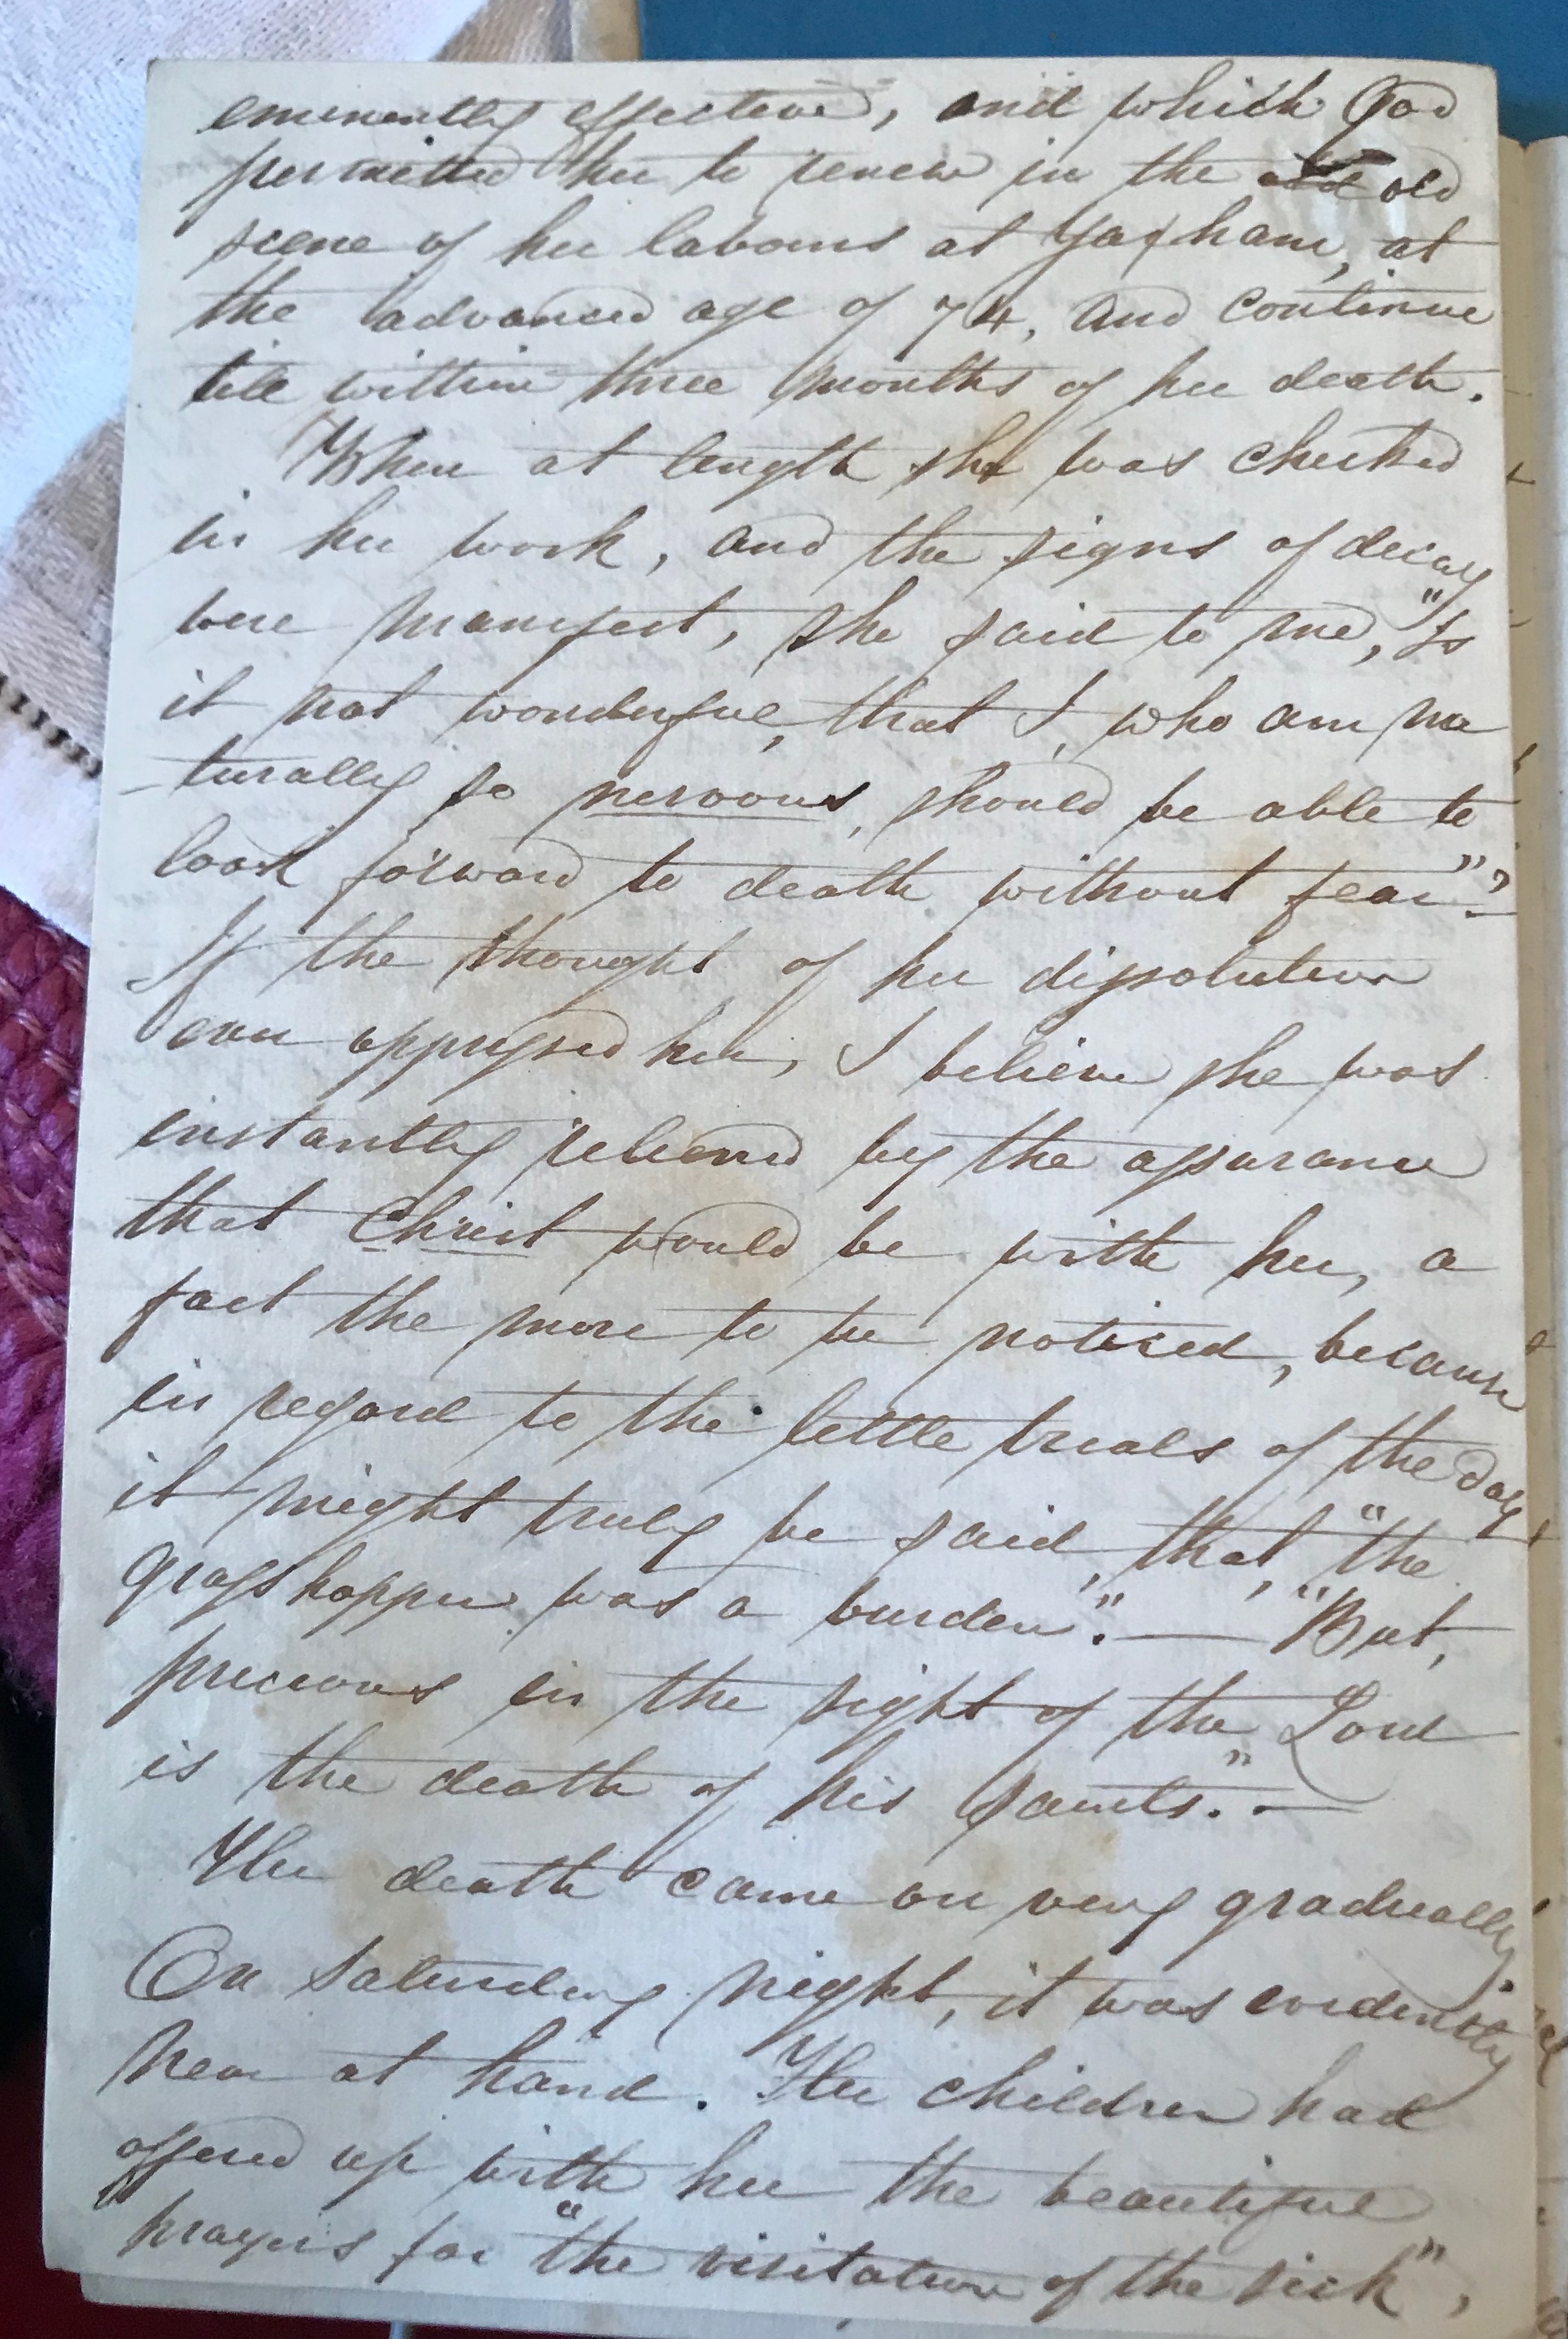 eminently effective, and which God
permitted her to renew in the old
scene of her labours at Yaxham, at
the advanced age of 74, and continue
till within three months of her death.
When at length she was checked
in her work, and the signs of decay
were manifest, she said to me, "Is
it not wonderful, that I, who am na
-turally so nervous, should be able to
look forward to death without fear"?
If the thought of her dissolution
ever oppressed her, I believe she was
instantly relieved by the assurance
that Christ would be with her, a
fact the more to be noticed, because
in regard to the little trials of the day,
it might truly be said, that, "the
grasshopper was a burden". — "But,
precious in the sight of the Lord
is the death of his saints." —
Her death came on very gradually.
On Saturday night, it was evidently
near at hand. Her children had
offered up with her the beautiful
prayers for "the visitation of the sick",